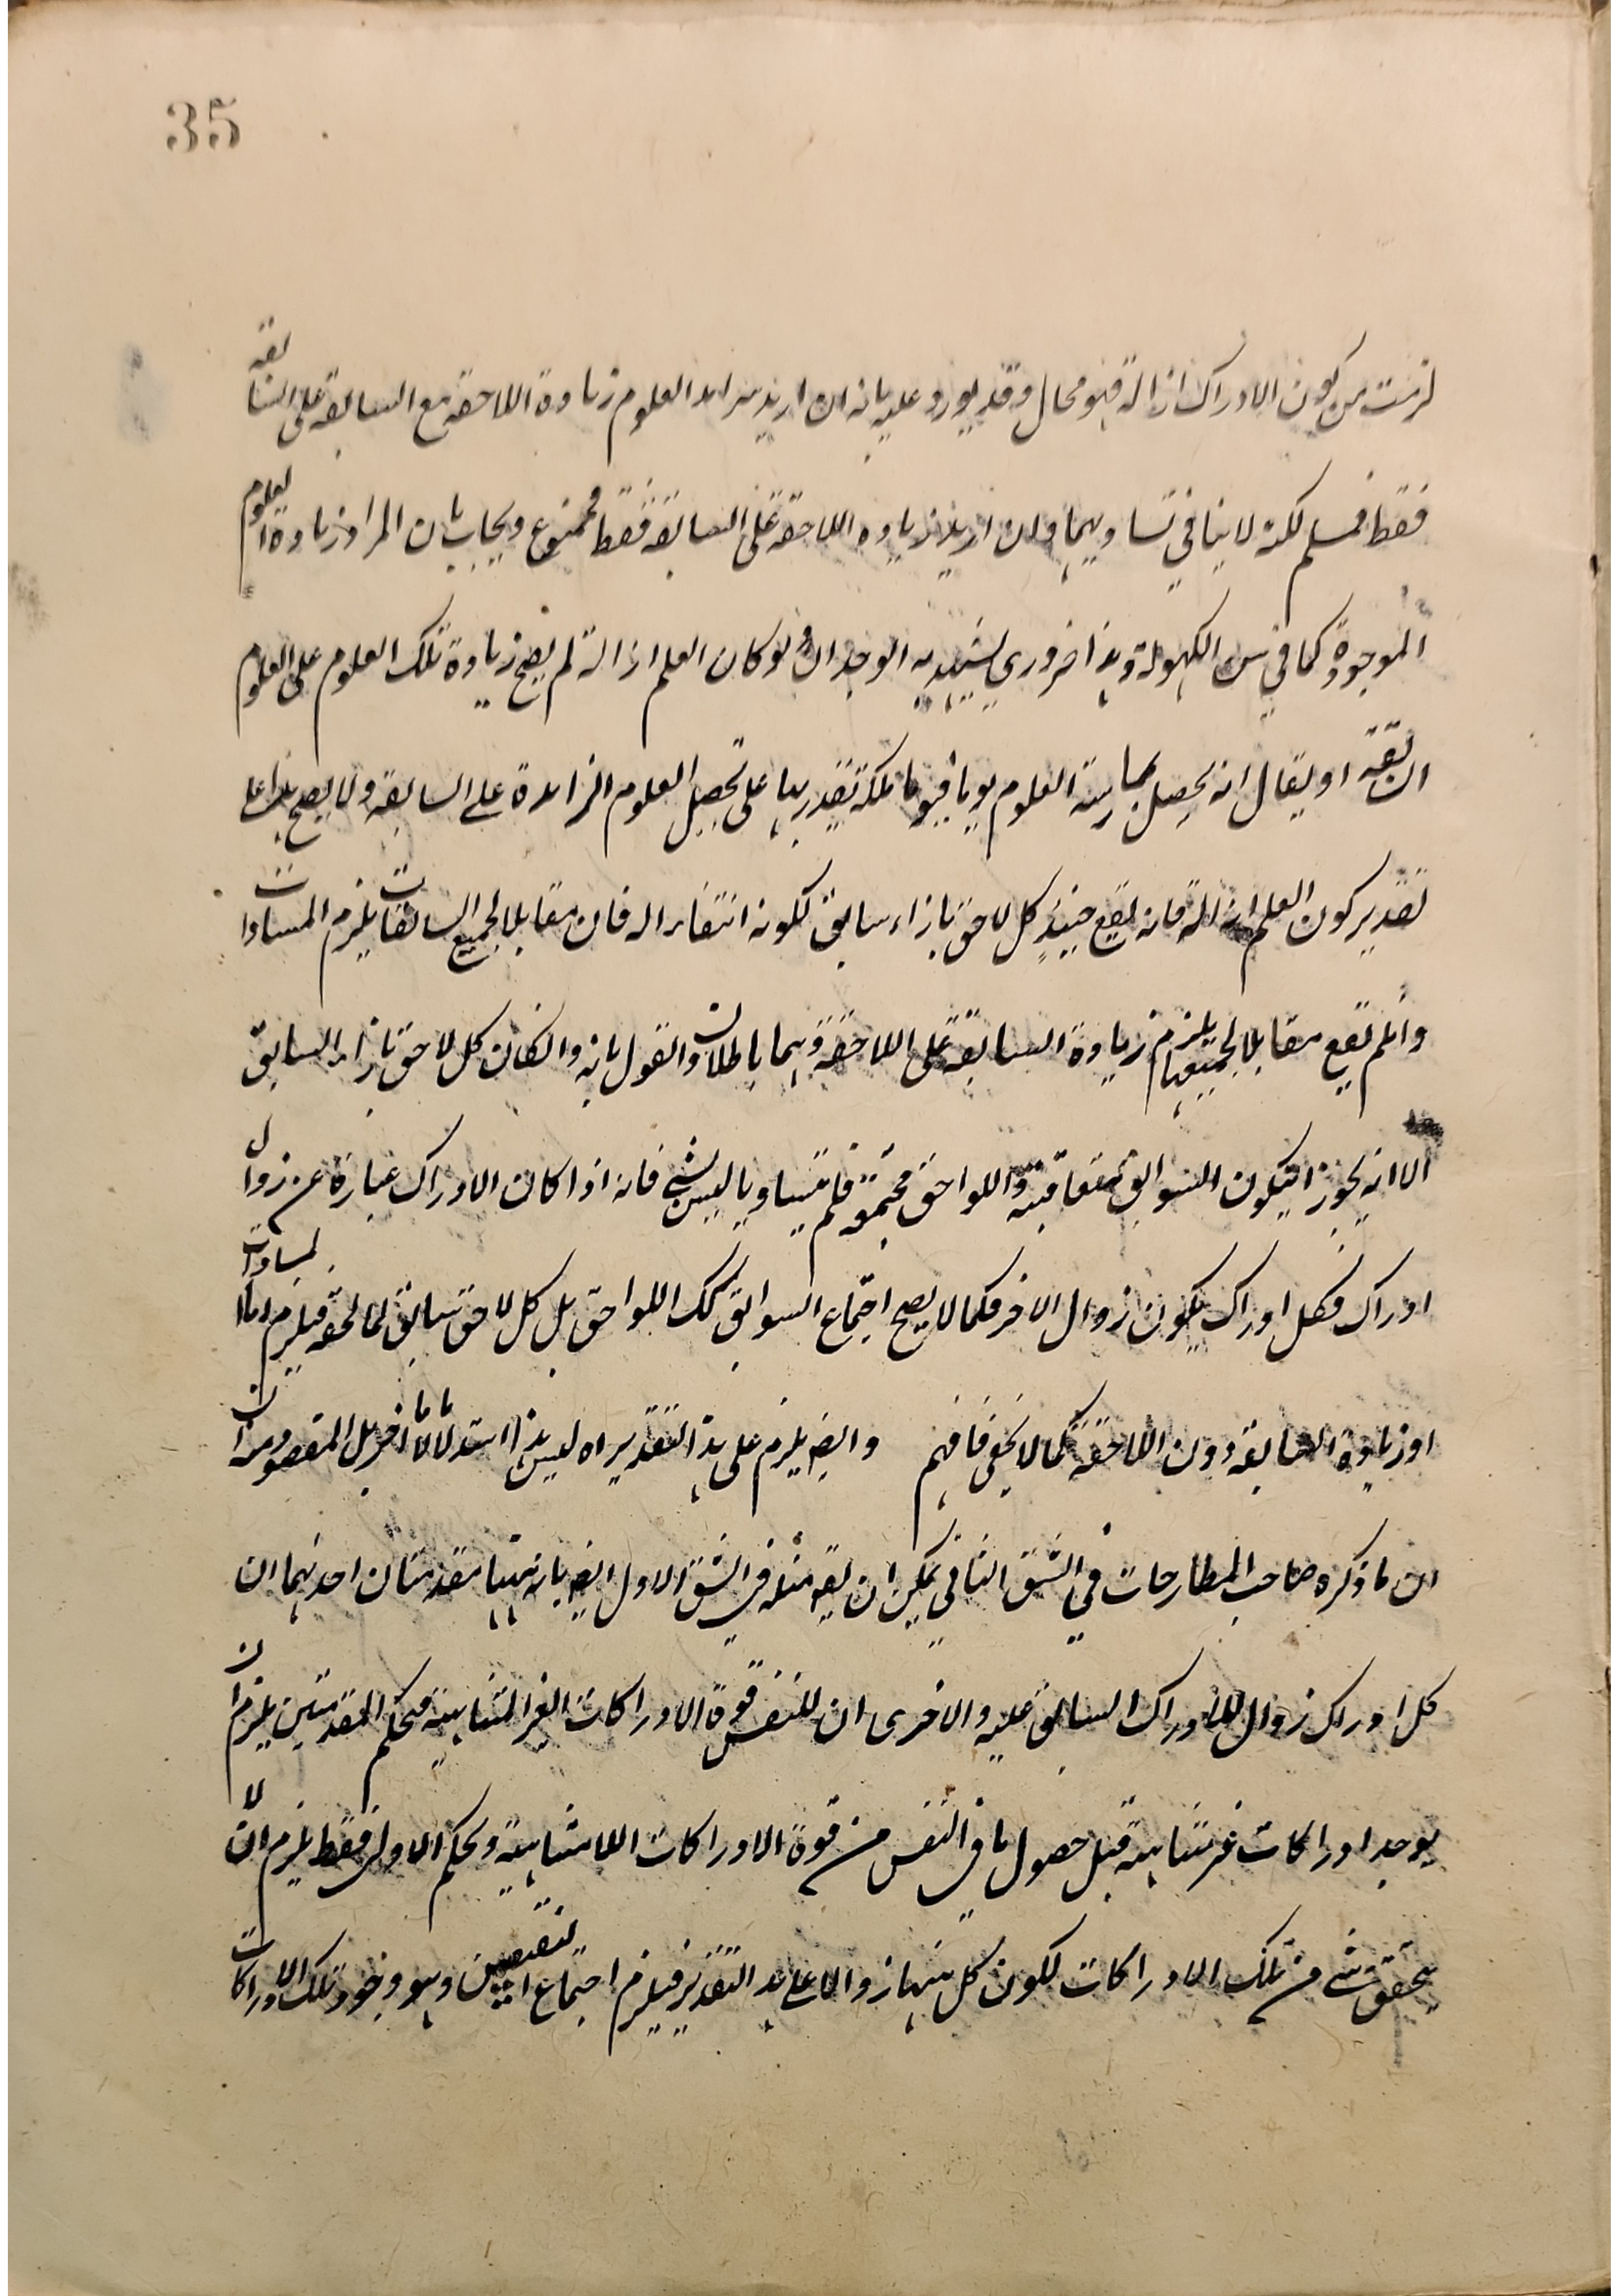 35
لزمت من كون الادراك ازالة فهو محال وقد يورد عليه بانه ان اريد بتزايد العلوم زيادة اللاحقة مع السابقة على السابقة
فقط فمسلم لكنه لا ينافي تساويهما وان اريد زيادة اللاحقة على السابقة فقط فممنوع ويجاب بان المراد زيادة العلوم
الموجودة كما في سن الكهولة وهذا ضروري يشهد به الوجدان ولو كان العلم ازالة لم يصح زيادة تلك العلوم على العلوم
السابقة او يقال انه يحصل بممارسة العلوم يوما فيوما ملكة تقتدر بها على تحصيل العلوم الزائدة على السابقة ولا يصح هذا على
تقدير كون العلم ازالة فانه يقع حينئذ كل لاحق بازاء سابق لكونه انتفاء له فان مقابلا لجميع السابقات يلزم المساوات
وان لم يقع مقابلا لجميعها يلزم زيادة السابقة على اللاحقة وهما باطلان والقول بانه وان كان كل لاحق بازاء السابق
الا انه يجوز ان يكون السوابق متعاقبة واللواحق مجتمعة فلم يتساويا ليس بشيء فانه اذا كان الادراك عبارة عن زوال
ادراك فكل ادراك يكون زوال الاخر فكما لا يصح اجتماع السوابق كك اللواحق بل كل لاحق سابق لما لحقه فيلزم اما المساوات
او زيادة السابقة دون اللاحقة كما لا يخفى فافهم وايضا يلزم على هذا التقدير اه ليس هذا استدلالا اخر بل المقصود منه ان
ان ما ذكره صاحب المطارحات في الشق الثاني يمكن ان يقه مثله في الشق الاول ايضا بانه ههنا مقدمتان احدهما ان
كل ادراك زوال للادراك السابق عليه والاخرى ان للنفس قوة الادراكات الغير المتناهية فبحكم المقدمتين يلزم ان
يوجد ادراكات غير متناهية قبل حصول ما في النفس من قوة الادراكات اللامتناهية وبحكم الاولى فقط يلزم ان لا
يتحقق شيء من تلك الادراكات لكون كل منها زوالا على هذا التقدير فيلزم اجتماع النقيضين وهو وجود تلك الادراكات